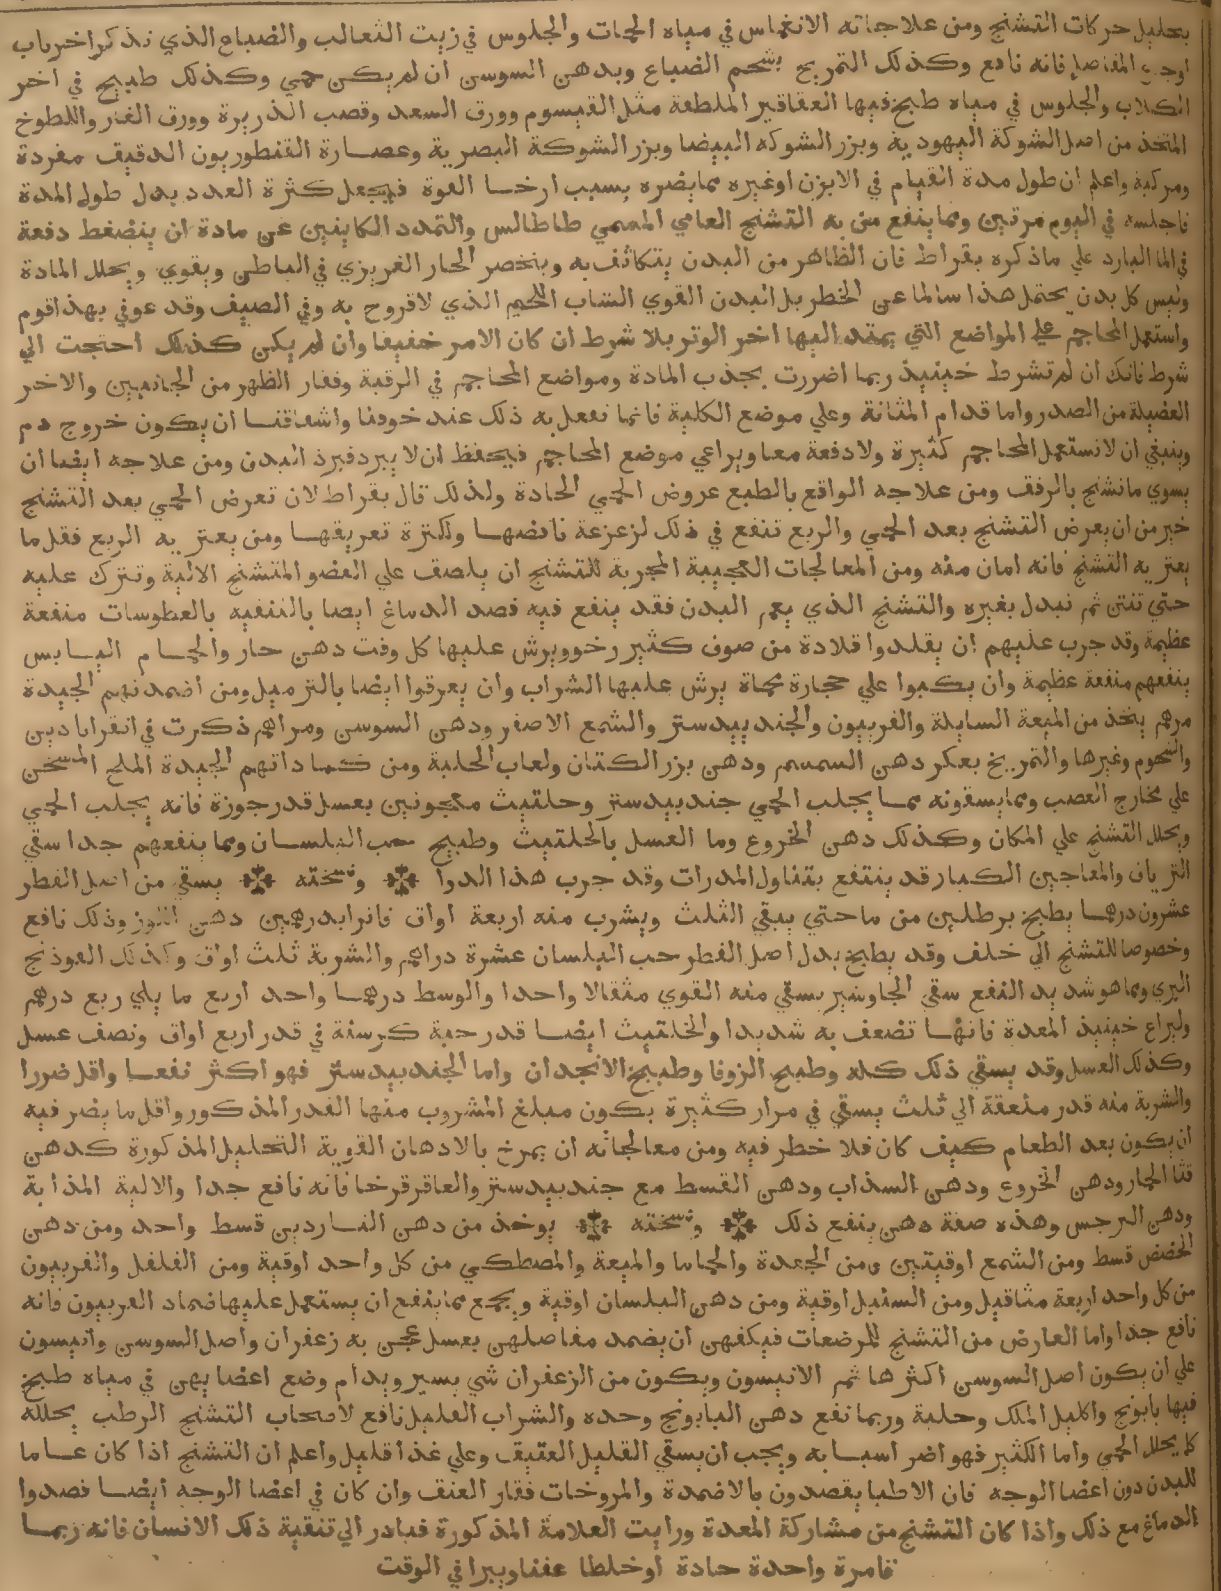 بحليل حركات التشنج ومن علاجاته الانغماس في مياه الحمات والجلوس في زيت الثعالب والضباع الذي نذكر اخر باب
اوجاع المفاصل فانه نافع وكذلك التمريخ بشحم الضباع وبدهن السوسن ان لم يكن حمي وكذلك طبيخ في اخر
الكلاب والجلوس في مياه طبخ فيها العقاقير الملطفة مثل القيسوم وورق السعد وقصب الذريرة وورق الغار واللطوخ
المتخذ من اصل الشوكة اليهودية وبزر الشوكه البيضا وبزر الشوكة البصرية وعصارة القنطوريون الدقيق مفردة
ومركبة واعلم ان طول مدة القيام في الابزن اوغيره مما يضره بسبب ارخا القوة فيجعل كثرة العدد بدل طول المدة
فاجلسه في اليوم مرتين ومما ينفع من به التشنج العامي المسمي طاطالس والتمدد الكاينين عن مادة ان ينضغط دفعة
في الما البارد علي ماذكره بقراط فان الظاهر من البدن يتكاثف به وينحصر الحار الغريزي في الباطن ويقوي ويحلل المادة
وليس كل بدن يحتمل هذا سالما عن الخطر بل البدن القوي الشاب اللحيم الذي لاقروح به وفي الصيف وقد عوفي بهذا قوم
واستعمل المحاجم علي المواضع التي يمتد اليها اخر الوتر بلا شرط ان كان الامر خفيفا وان لم يكن كذلك احتجت الي
شرط فانك ان لم تشرط حينيذ ربما اضررت بجذب المادة ومواضع المحاجم في الرقبة وفقار الظهر من الجانبين والاخر
العضيلة من الصدر واما قدام المثانة وعلي موضع الكلية فانما نفعل به ذلك عند خوفنا واشفاقنا ان يكون خروج دم
وينبغي ان لانستعمل المحاجم كثيرة ولا دفعة معا ويراعي موضع المحاجم فيحفظ ان لا يبرد فيرد البدن ومن علاجه ايضا ان
يسوي ماتشنج بالرفق ومن علاجه الواقع بالطبع عروض الحمي الحادة ولذلك قال بقراط لان تعرض الحمي بعد التشنج
خير من ان يعرض التشنج بعد الحمي والربع تنفع في ذلك لزعزعة نافضها ولكثرة تعريقها ومن يعتر يه الربع فقلما
يعتر يه التشنج فانه امان منه ومن المعالجات العجيبة المجربة للتشنج ان يلصق علي العضو المتشنج الالية وتترك عليه
حتي تنتن ثم تبدل بغيره والتشنج الذي يعم البدن فقد ينفع فيه فصد الدماغ ايضا بالتنقيه بالعطوسات منفعة
عظيمة وقد جرب عليهم ان يقلدوا قلادة من صوف كثير رخو ويرش عليها كل وقت دهن حار والحمام اليابس
ينفعهم منفعة عظيمة وان يكبوا علي حجارة محماة يرش عليها الشراب وان يعرقوا ايضا بالتزميل ومن اضمدتهم الجيدة
مرهم يتخذ من الميعة السايلة والفربيون والجندبيدستر والشمع الاصفر ودهن السوسن ومراهم ذكرت في القراباذين
والشحوم وغيرها والتمريخ بعكر دهن السمسم ودهن بزر الكتان ولعاب الحلبة ومن كماداتهم الجيدة الملح المسخن
علي مخارج العصب ومما يسقونه مما يجلب الحمي جندبيدستر وحلتيث معجونين بعسل قدر جوزة فانه يجلب الحمي
ويحلل التشنج علي المكان وكذلك دهن الخروع وما العسل بالحلتيث وطبيخ حب البلسان ومما ينفعهم جدا سقي
الترياق والمعاجين الكبار قد ينتفع بتناول المدرات وقد جرب هذا الدوا ونسخته يسقي من اصل الفطر
عشرون درهما يطبخ برطلين من ما حتي يبقي الثلث ويشرب منه اربعة اواق فاترا بدرهمين دهن اللوز وذلك نافع
وخصوصا للتشنج الي خلف وقد يطبخ بدل اصل الفطر حب البلسان عشرة دراهم والشربة ثلث اواق وكذلك الفوذنج
البري ومما هو شديد النفع سقي الجاوشير يسقي منه القوي مثقالا واحدا والوسط درهما واحد اربع ما يلي ربع درهم
وليراع حينيذ المعدة فانها تضعف به شديدا والحلتيث ايضا قدر حبة كرسنة في قدر اربع اواق ونصف عسل
وكذلك العسل وقد يسقي ذلك كله وطبيخ الزوفا وطبيخ الانجدان واما الجندبيدستر فهو اكثر نفعا واقل ضررا
والشربة منه قدر ملعقة الي ثلث يسقي في مرار كثيرة يكون مبلغ المشروب منها القدر المذكور واقل ما يضر فيه
ان يكون بعد الطعام كيف كان فلا خطر فيه ومن معالجاته ان يمرخ بالادهان القوية التحليل المذكورة كدهن
قثا الحمار ودهن الخروع ودهن السذاب ودهن القسط مع جندبيدستر والعاقرقرحا فانه نافع جدا والالية المذابة
ودهن النرجس وهذه صفة دهن ينفع ذلك ونسخته يوخذ من دهن الناردين قسط واحد ومن دهن
الحضض قسط ومن الشمع اوقيتين ومن الجعدة والحماما والميعة والمصطكي من كل واحد اوقية ومن الفلفل والفربيون
من كل واحد اربعة مثاقيل ومن السنبل اوقية ومن دهن البلسان اوقية ويجمع مما ينفع ان يستعمل عليها ضماد الفربيون فانه
نافع جدا واما العارض من التشنج للمرضعات فيكفهن ان يضمد مفاصلهن بعسل عجن به زعفران واصل السوسن وانيسون
علي ان يكون اصل السوسن اكثرها ثم الانيسون ويكون من الزعفران شي يسير ويدام وضع اعضايهن في مياه طبخ
فيها بابونج واكليل الملك وحلبة وربما نفع دهن البابونج وحده والشراب القليل نافع لاصحاب التشنج الرطب يحلله
كما يحلل الحمي واما الكثير فهو اضر اسبابه ويجب ان يسقي القليل العتيق وعلي غذا قليل واعلم ان التشنج اذا كان عاما
للبدن دون اعضا الوجه فان الاطبا يقصدون بالاضمدة والمروخات فقار العنق وان كان في اعضا الوجه ايضا قصدوا
الدماغ مع ذلك واذا كان التشنج من مشاركة المعدة ورايت العلامة المذكورة فبادر الي تنقية ذلك الانسان فانه ربما
قا مرة واحدة حادة اوخلطا عفنا ويبرا في الوقت